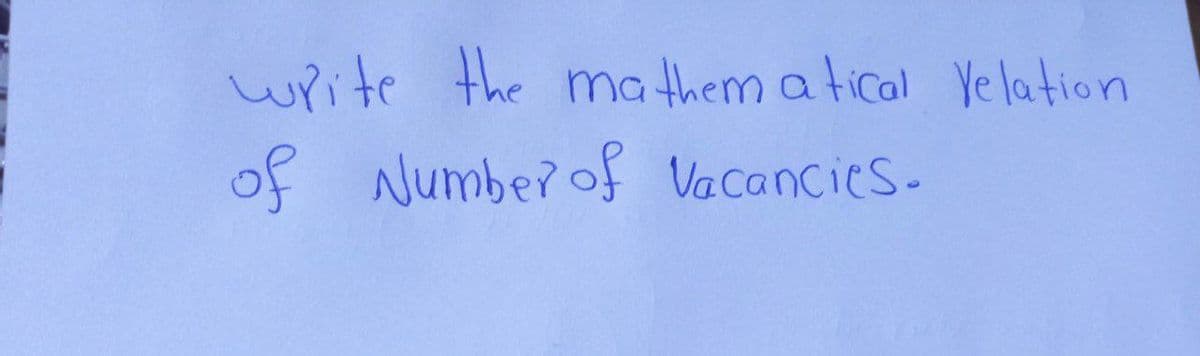 write the mathematical relation
of Number of Vacancies.